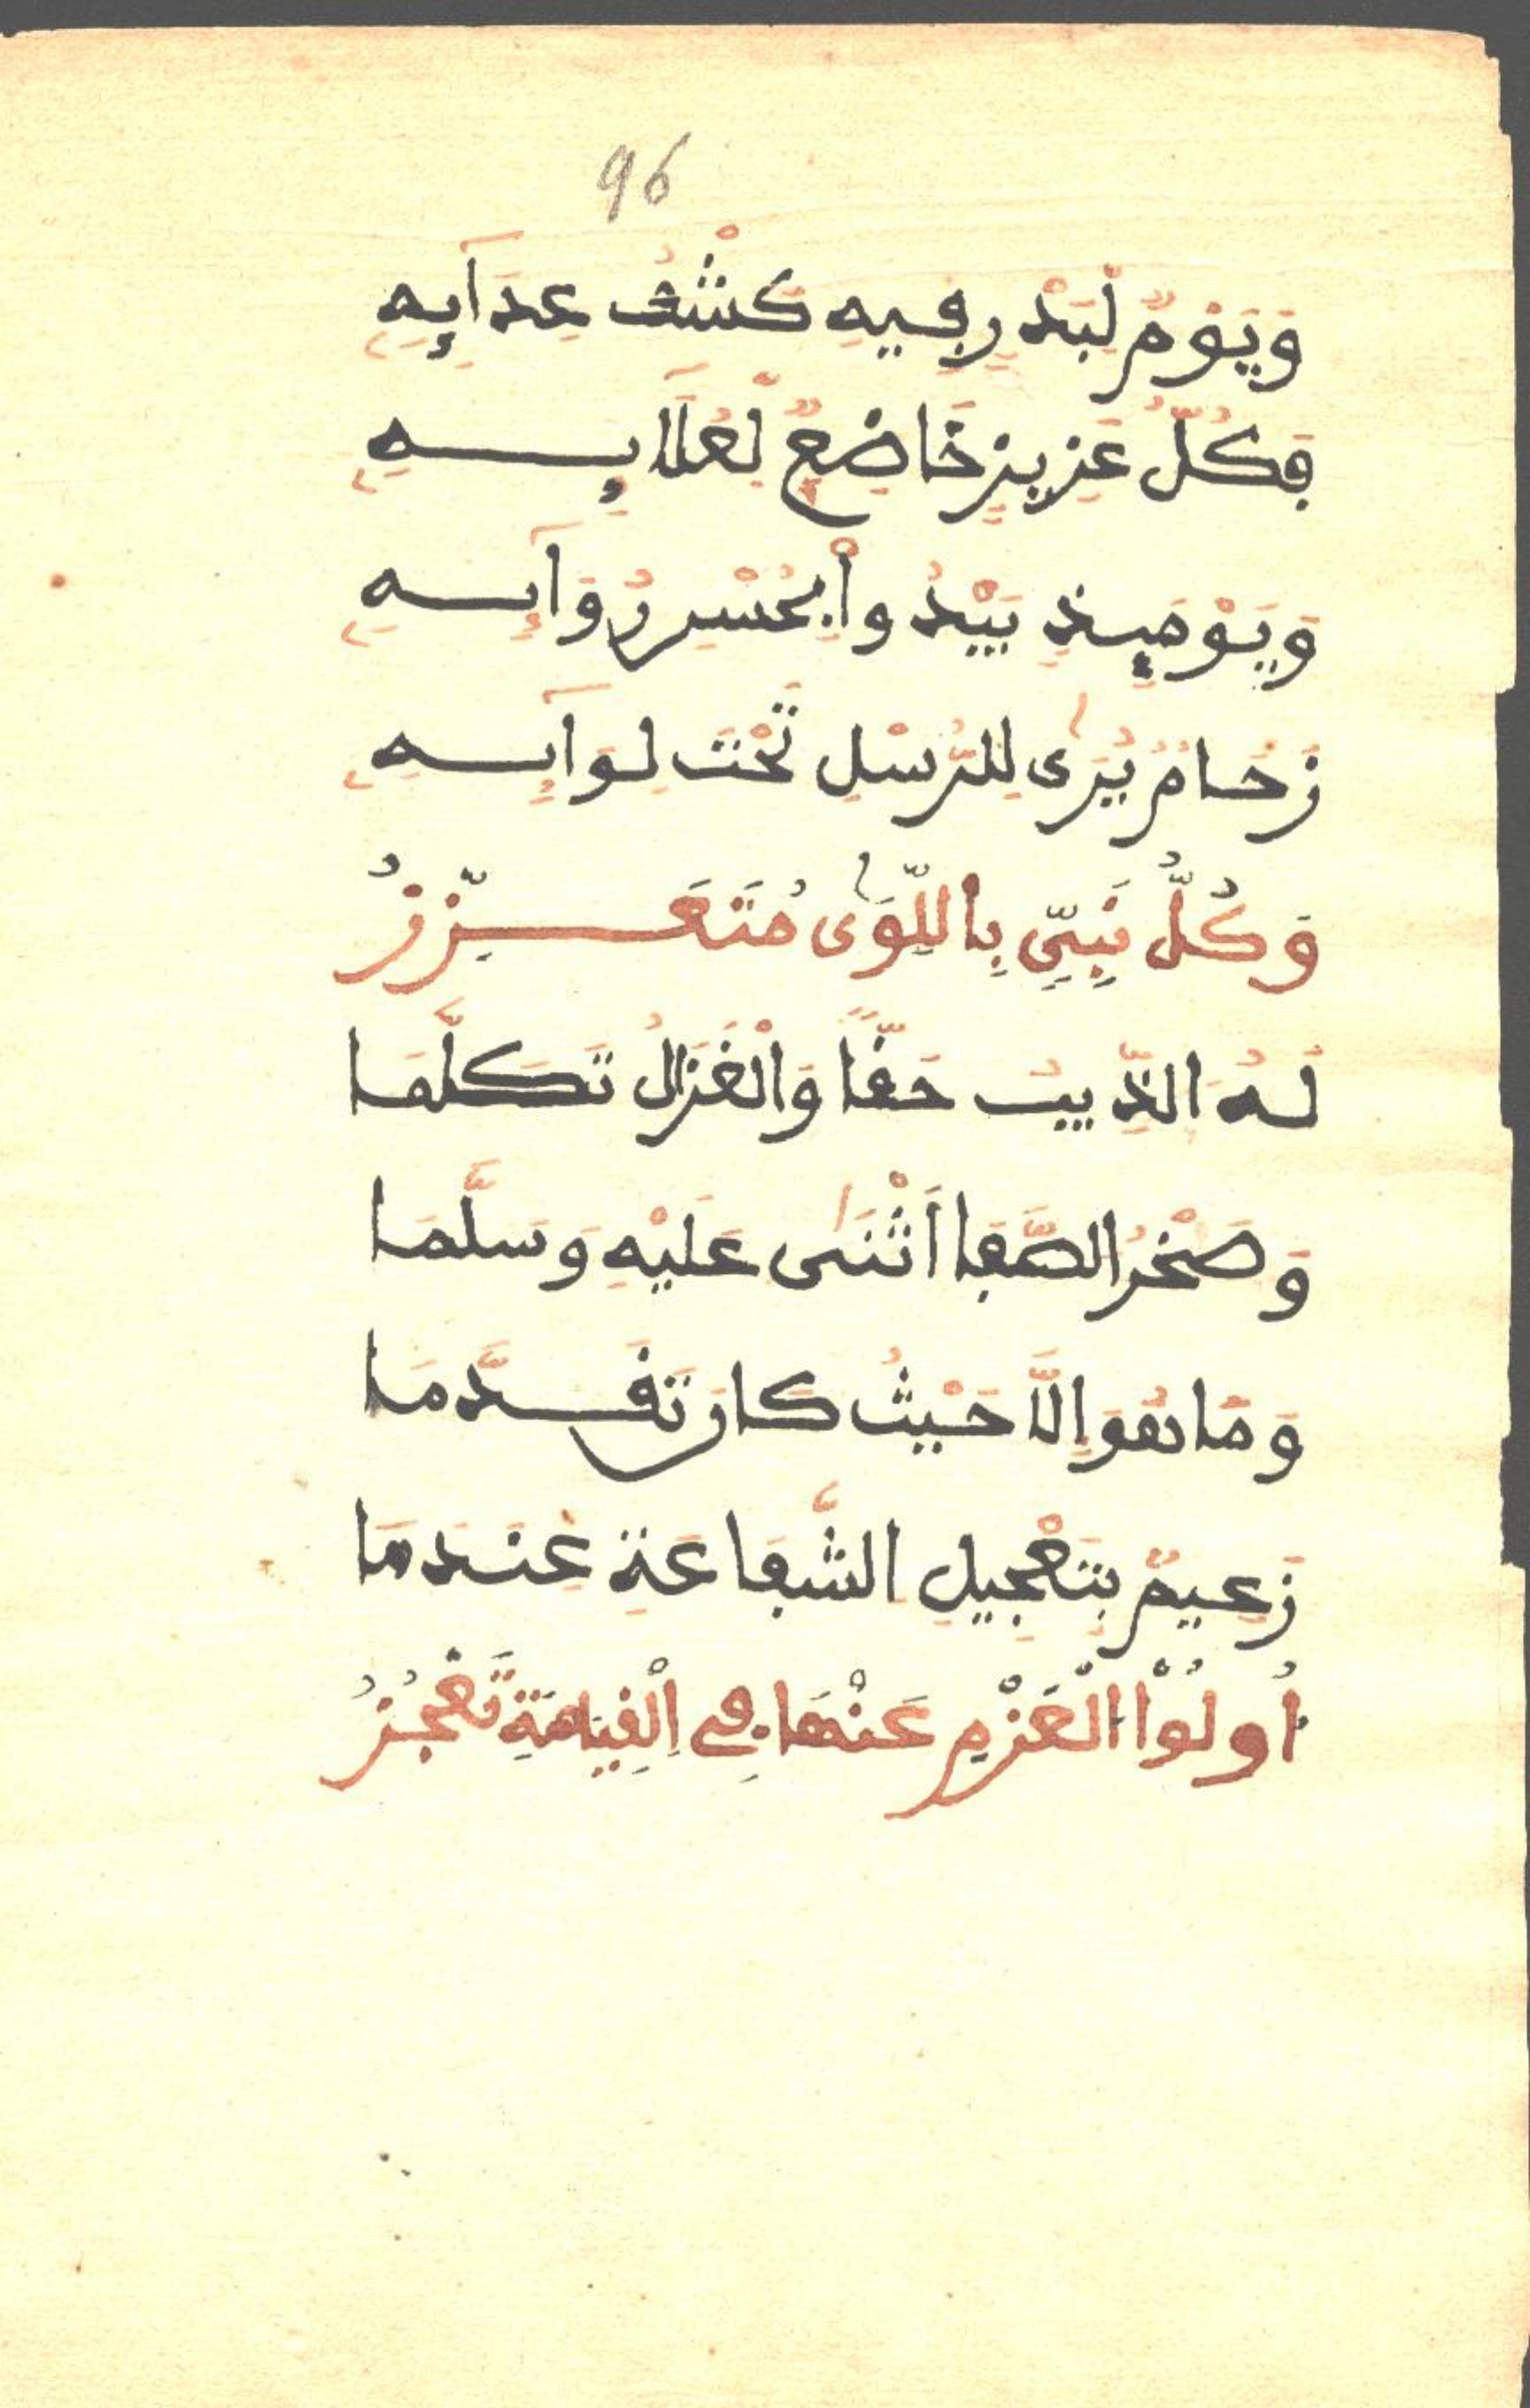 96
وَيَوْمٌ لِّبَدْرٍ فِيهِ كَشْفُ عِدَآئِهِ
فَكُلُّ عَزِيزٍ خَاضِعٌ لِّعُلَآئِهِ
وَيَوْمَئِذٍ يَبْدُوا بِحُسْنِ رُوَآئِهِ
زَحَامٌ يُرَى لِلرُّسْلِ تَحْتَ لِوَآئِهِ
وَكُلُّ نَبِيٍّ بِاللِّوَى مُتَعَزِّزُ
لَهُ الذِّيبُ حَقًّا وَالْغَزَالُ تَكَلَّمَا
وَصَخْرُ الصَّفَا أَثْنَى عَلَيْهِ وَسَلَّمَا
وَمَا هُوَ إِلَّا حَيْثُ كَانَ تَقَدَّمَا
زَعِيمٌ بِتَعْجِيلِ الشَّفَاعَةِ عِنْدَمَا
أُولُوْا الْعَزْمِ عَنْهَا فِي الْقِيَامَةِ تَعْجُزُ